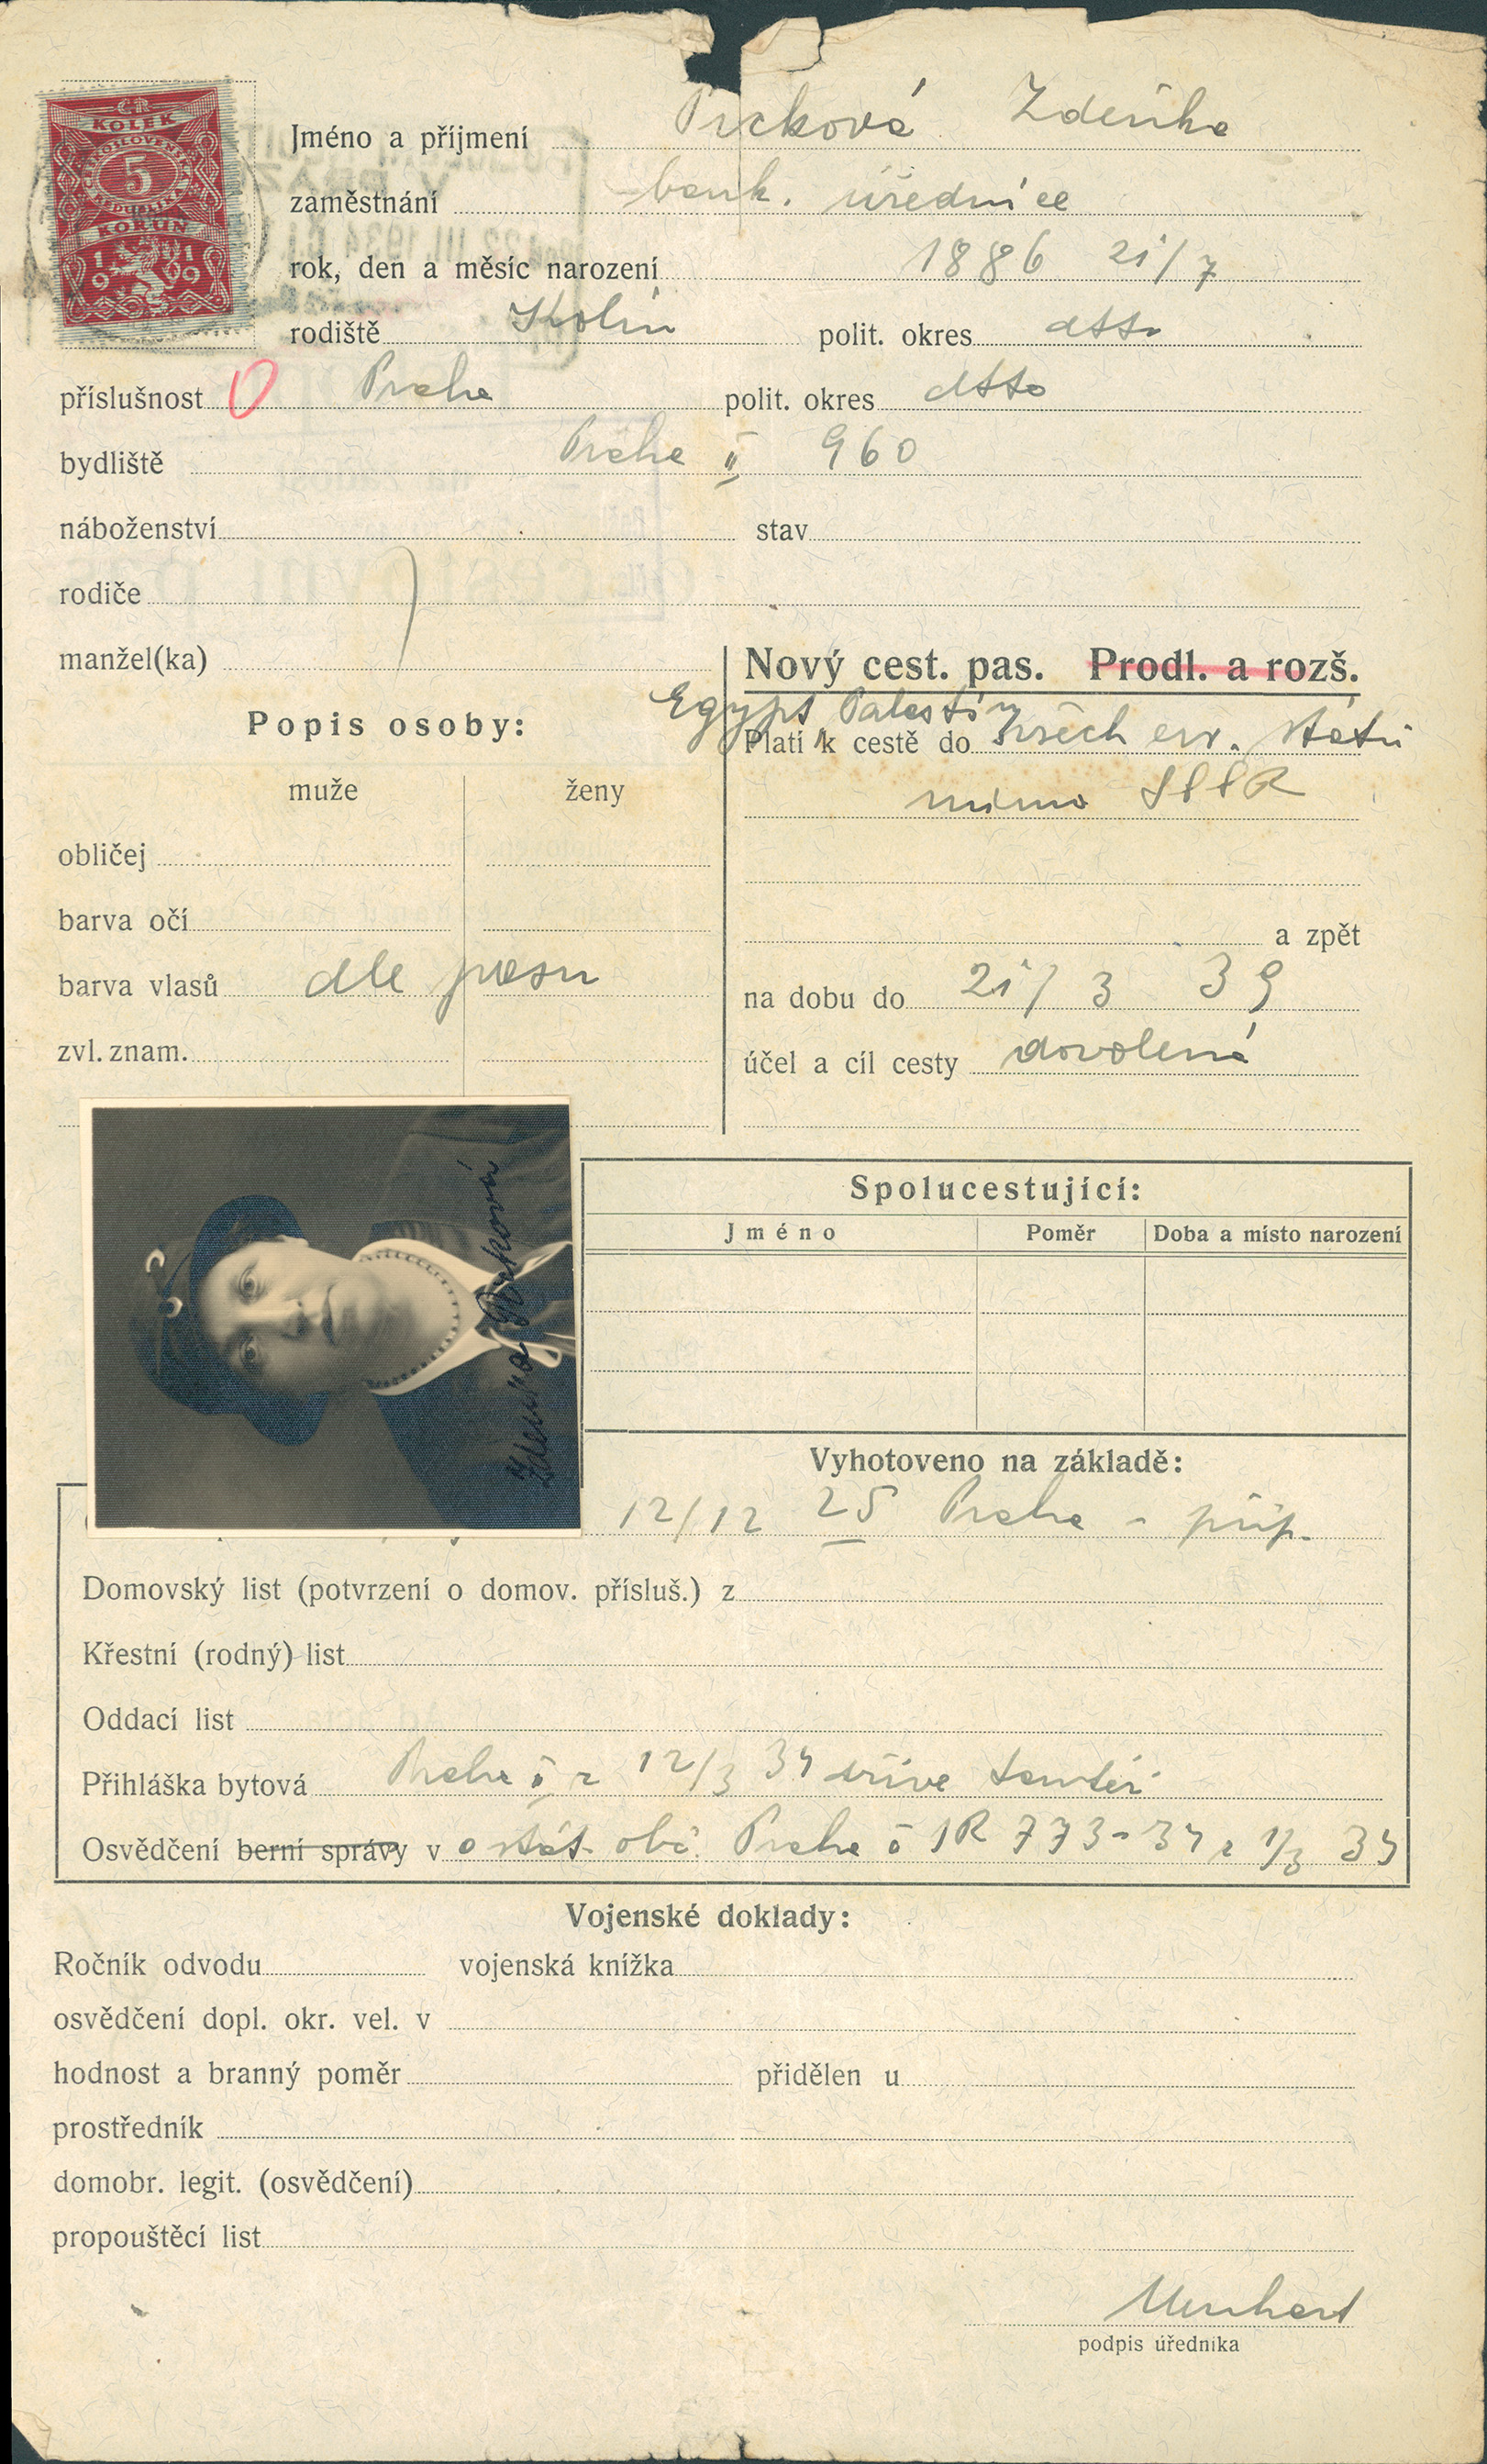 ČR
KOLEK
ČESKOSLOVENSKÁ
5
REPUBLIKA
KORUN
1919
Jméno a příjmení Prcková Zdeňka
zaměstnání bank. úřednice
rok, den a měsíc narození 1886 21/7
rodiště Kolín polit. okres dtto
příslušnost Praha polit. okres dtto
bydliště Praha II 960
náboženství stav
rodiče
manžel(ka)
Nový cest. pas. Prodl. a rozš.
Popis osoby:
muže ženy
obličej
barva očí
barva vlasů dle pasu
zvl. znam.
Egypt Palestin
Platí k cestě do všech evr. států
mimo SSSR
a zpět
na dobu do 21/3 39
účel a cíl cesty dovolená
Zdenka Prcková
Spolucestující:
Jméno Poměr Doba a místo narození
Vyhotoveno na základě:
12/12 25 Praha - příp.
Domovský list (potvrzení o domov. přísluš.) z
Křestní (rodný) list
Oddací list
Přihláška bytová Praha II z 12/3 34 dříve tamtéž
Osvědčení berní správy v o stát. obč. Praha č 1R 773-34 z 1/3 34
Vojenské doklady:
Ročník odvodu vojenská knížka
osvědčení dopl. okr. vel. v
hodnost a branný poměr přidělen u
prostředník
domobr. legit. (osvědčení)
propouštěcí list
podpis úředníka